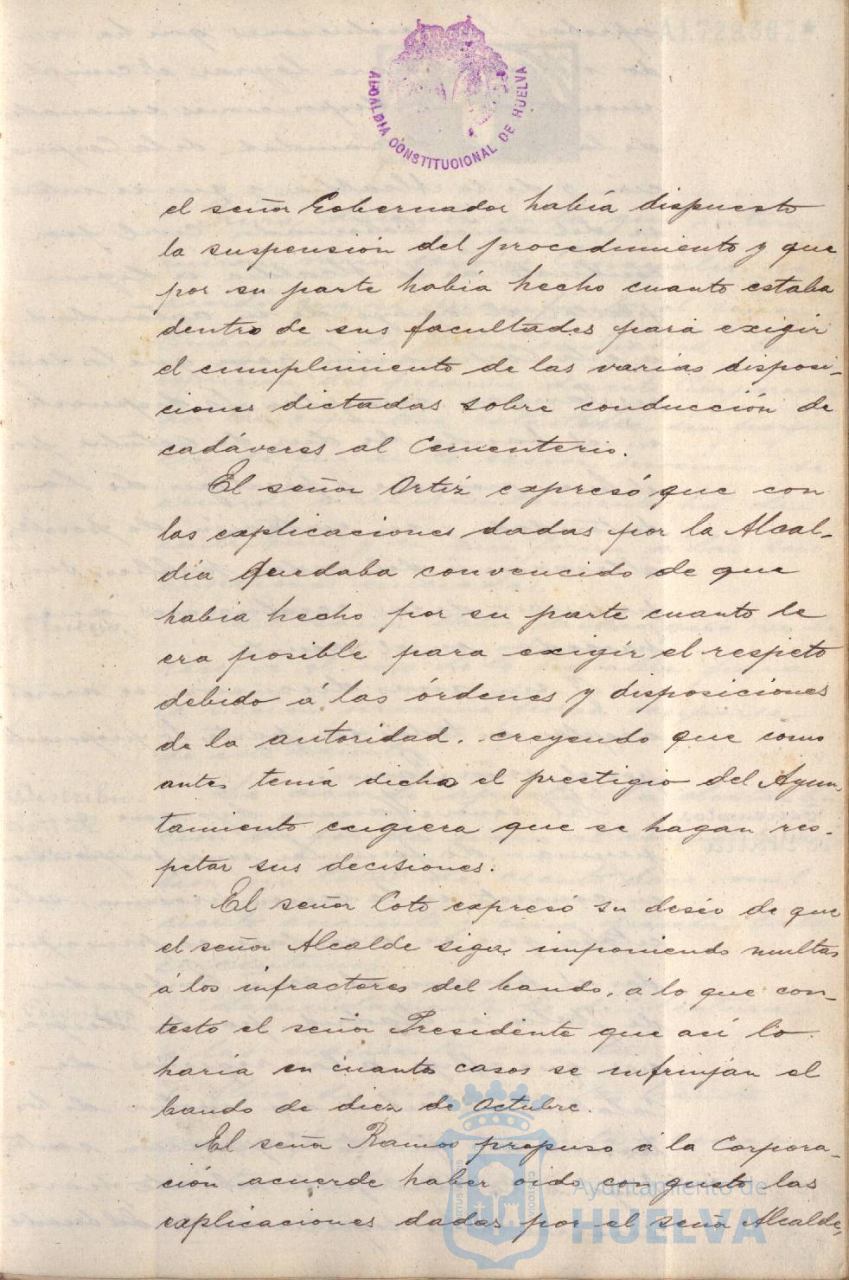 ALCALDIA CONSTITUCIONAL DE HUELVA
el señor Gobernador había dispuesto
la suspensión del procedimiento y que
por su parte había hecho cuanto estaba
dentro de sus facultades para exigir
el cumplimiento de las varias disposi-
ciones dictadas sobre conducción de
cadáveres al Cementerio.
El señor Ortíz expresó que con
las explicaciones dadas por la Alcal-
día quedaba convencido de que
había hecho por su parte cuanto le
era posible para exigir el respeto
debido á las órdenes y disposiciones
de la autoridad, creyendo que como
antes tenía dicho el prestigio del Ayun-
tamiento exigiera que se hagan res-
petar sus decisiones.
El señor Coto expresó su deseo de que
el señor Alcalde siga imponiendo multas
á los infractores del bando, á lo que con-
testó el señor Presidente que así lo
haría en cuantos casos se infrinján el
bando de diez de Octubre.
El señor Ramos propuso á la Corpora-
ción acuerde haber oido con gusto las
explicaciones dadas por el señor Alcalde,
Ayuntamiento de
HUELVA